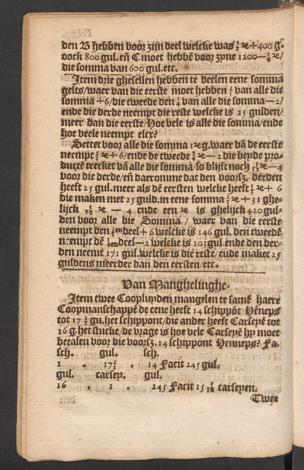 den B hebben voor zijn deel welcke was ⅔ ꝛc + 400 gᵘ
dock 800 gul. eñ C moet hebbē voor zyne 1200 — ⅓ ꝛc /
die somma van 600 gul. etc.
Item drie ghesellen hebben te deelen eene somma
gelts / waer van die eerste moet hebben ⅓ van alle die
somma + 6 / die tweede den ¼ van alle die somma — 2 /
ende die derde neempt die reste welcke is 25 gulden /
meer dan die eerste Hoe vele is alle die somma / ende
hoe veele neempt elcr?
Settet voor alle die somma 1 ꝛc g. waer vā dē eerste
neempt + 6 / ende de tweede ¼ ꝛc — 2 die beyde pro-
ducte trecket vā alle die somma / so blijft noch ꝛc — 4
voor die derde / en daeromme dat den voorsz. derden
heeft 25 gul. meer als dē eersten welcke heeft ꝛc + 6
die maken met 25 guld. in eene somma ꝛc + 31 ghe-
lijck ꝛc — 4 ende een ꝛc is ghelijck 420 gul-
den voor alle die Somma / waer van die eerste
neempt den deel + 6 welcke is 146 gul. den tweedē
neempt dē deel — 2 welcke is 103 gul. ende den der-
den neemt 171 gul. welcke is die reste / ende maket 25
guldens meer dan den eersten / etc.
Van Manghelinghe.
Item twee Coopluyden mangelen te samē haere
Coopmanschappē de eene heeft 14 schippōt Henneps
tot 17 ½ gu. het schippont / die ander heeft Carseyē tot
16 g. het stucke / de vrage is hoe vele Carseyē hy moet
betalen voor die voorsz. 14 schippont Henneps? Fa-
sch. gul. sch.
1 . 17½ . 14 Facit 245 gul.
gul. carsey. gul.
16 . 1 . 245 Facit 15 carseyen.
Twee